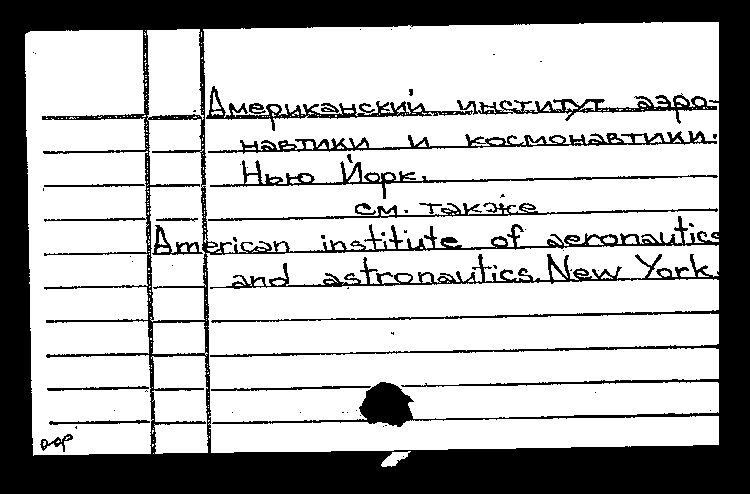 Американский институт аэро-
навтики и космонавтики.
Нью Йорк.
см. также
American institute of aeronautics
and astronautics. New York.